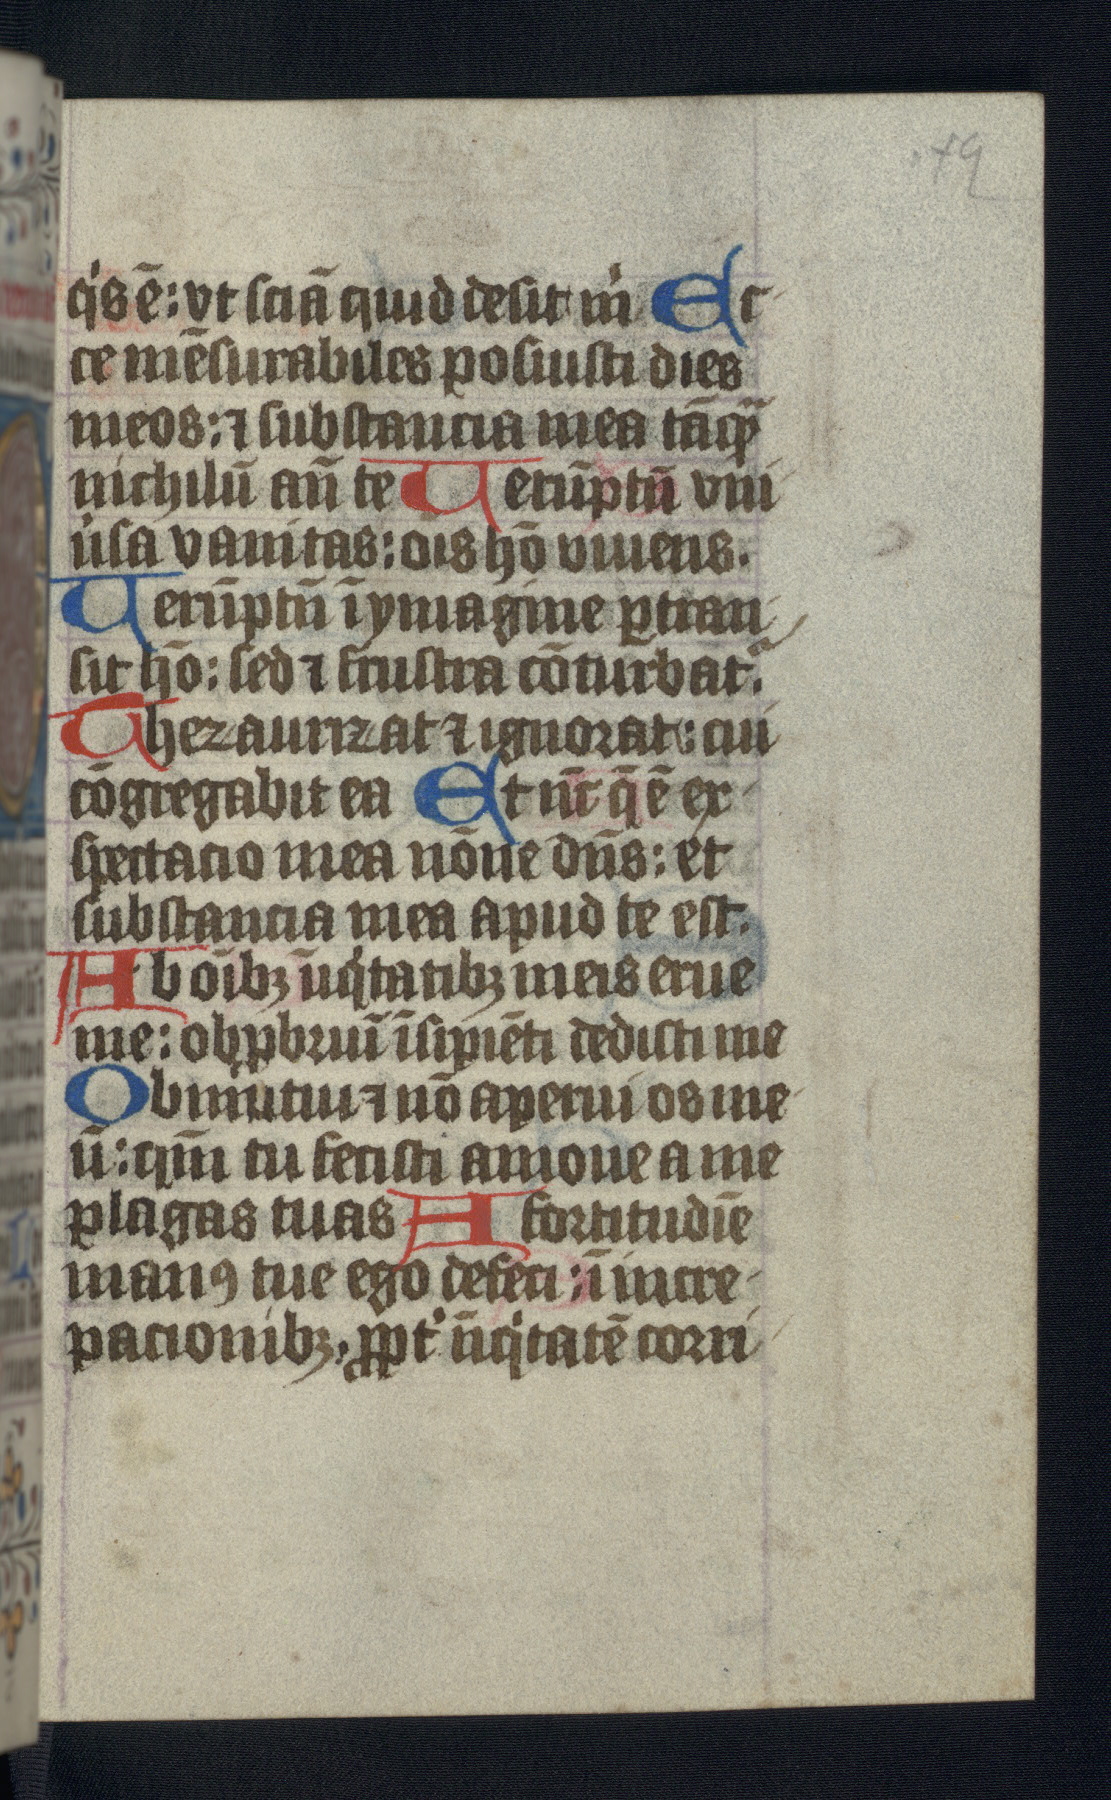 79
qͥs ē: vt sciā quid desit mͥ Et
ce mēsurabiles posuisti dies
meos: ⁊ substancia mea tāqͣꝫ
nichilū an̄ te Uerūptn̄ vni
ūsa vanitas: oīs hō viuens.
Uerūptn̄ ī ymagine ꝑtran
sit hō: sed ⁊ frustra cōturbatᷣ.
Thezaurizat ⁊ ignorat: cui
cōgregabit ea Et nūc q̄ ē ex
spectacio mea nōne dn̄s: et
substancia mea apud te est.
Ab oībꝫ īiqͥtatibꝫ meis erue
me: obꝓbriū īsipiēti dedisti me
Obmutui ⁊ nō aperui os me
ū: qm̄ tu fecisti amoue a me
plagas tuas A fortitudīe
manꝰ tue ego defeci: ī incre
pacionibꝫ. ꝓptͥ īiqͥtatē corri